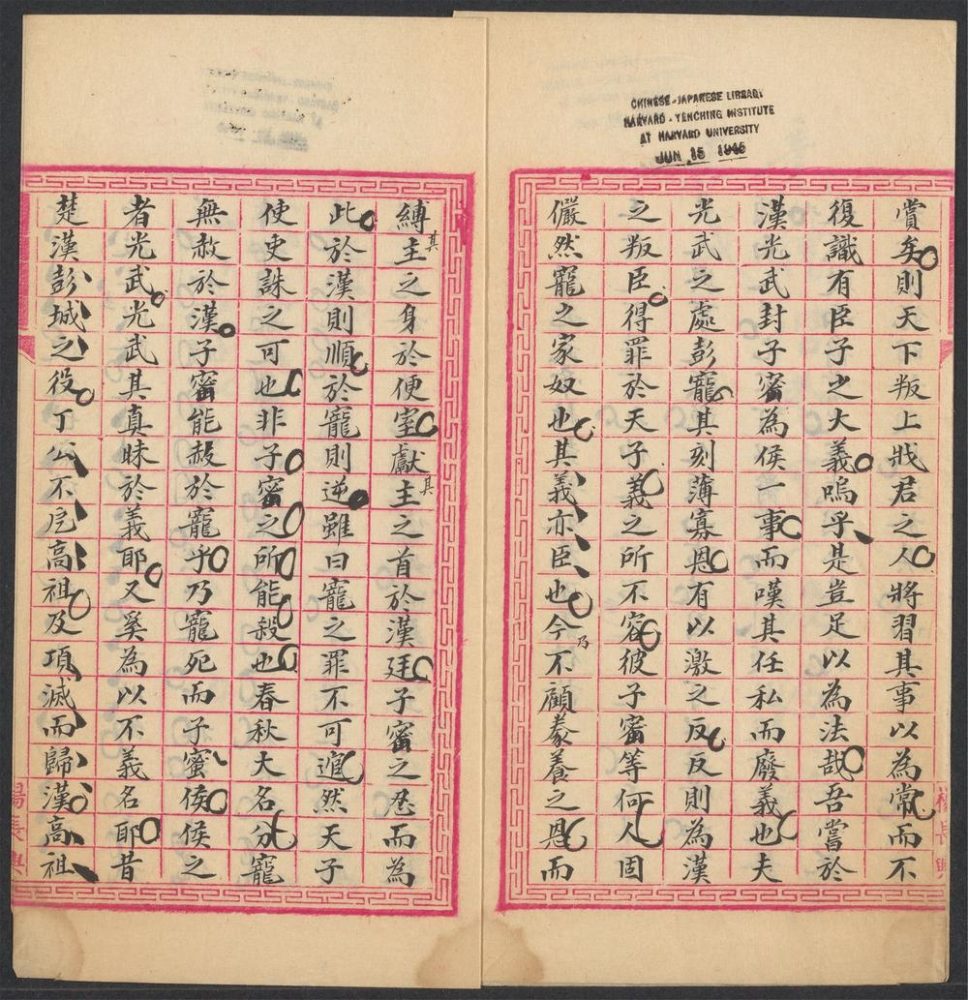 CHINESE-JAPANESE LIBRARY
HARVARD-YENCHING INSTITUTE
AT HARVARD UNIVERSITY
JUN 15 1946
賞矣則天下叛上戕君之人將習其事以為常而不
復識有臣子之大義嗚乎是豈足以為法哉吾嘗於
漢光武封子密為侯一事而嘆其任私而廢義也夫
光武之處彭寵其刻薄寡恩有以激之反反則為漢
之叛臣得罪於天子義之所不容彼子密等何人固
儼然寵之家奴也其義亦臣也今乃不顧豢養之恩而
縛其主之身於便室獻其主之首於漢廷子密之忍而為
此於漢則順於寵則逆雖曰寵之罪不可逭然天子
使吏誅之可也非子密之所能殺也春秋大名分寵
無赦於漢子密能赦於寵乎乃寵死而子蜜侯侯之
者光武光武其真昧於義耶又奚為以不義名耶昔
楚漢彭城之役丁公不戹高祖及項滅而歸漢高祖